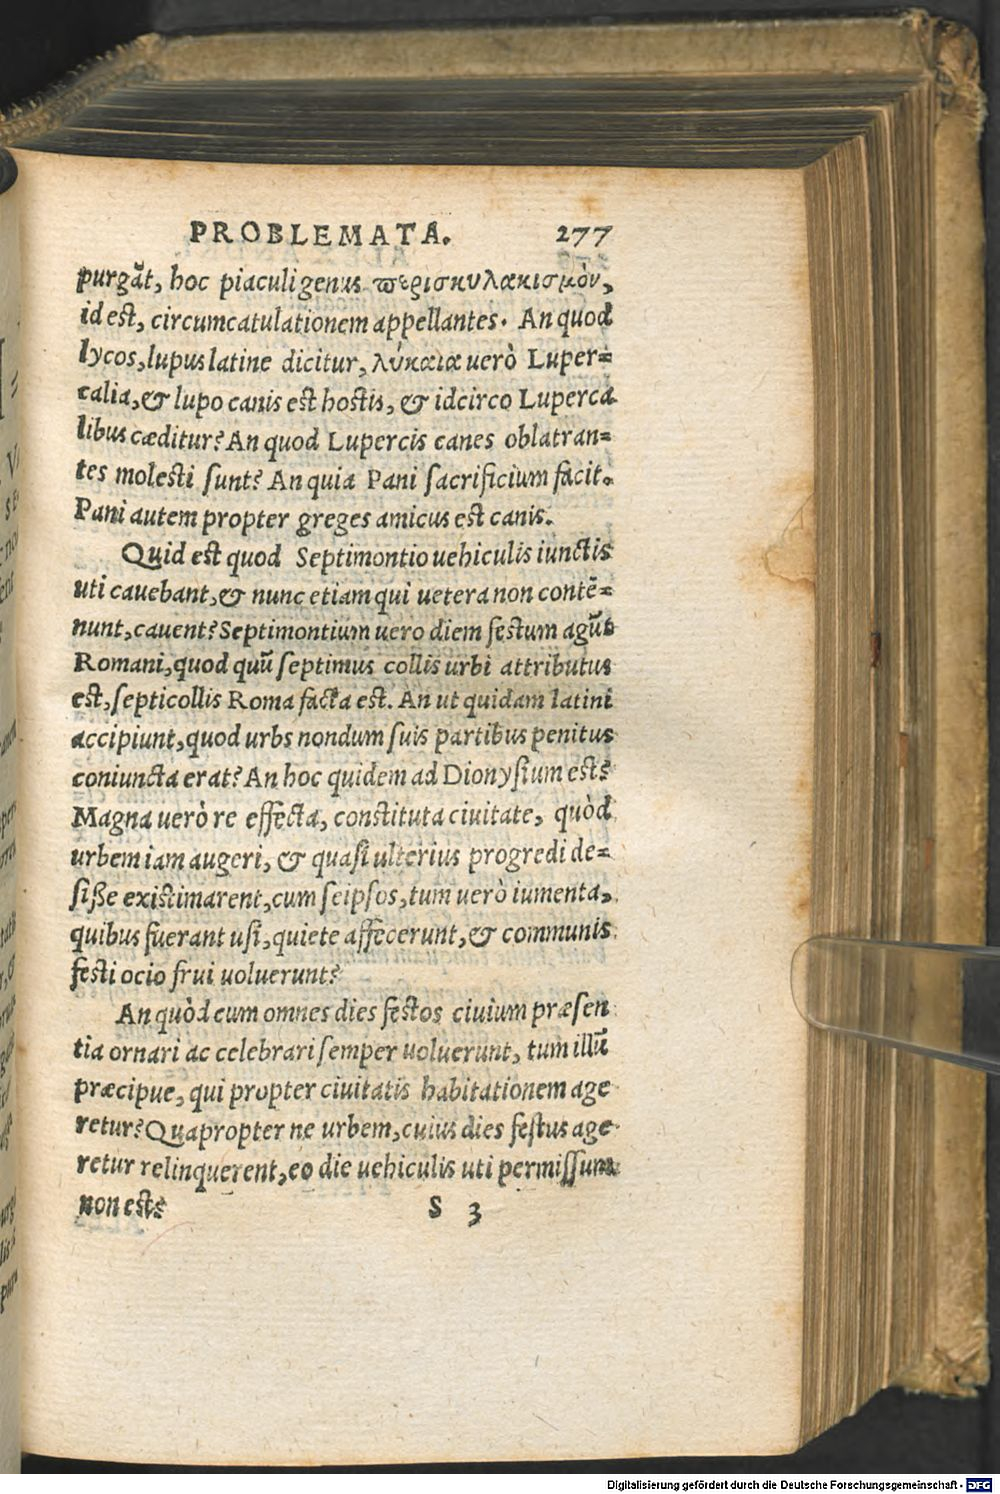 PROBLEMATA. 277
purgāt, hoc piaculi genus περισκυλακισμὸν,
id est, circumcatulationem appellantes. An quod
lycos, lupus latine dicitur, λύκαια uerò Luper=
calia, & lupo canis est hostis, & idcirco Luperca
libus cæditur? An quod Lupercis canes oblatran=
tes molesti sunt? An quia Pani sacrificium facit.
Pani autem propter greges amicus est canis.
Quid est quod Septimontio uehiculis iunctis
uti cauebant, & nunc etiam qui uetera non contē=
nunt, cauent? Septimontium uero diem festum agūt
Romani, quod quū septimus collis urbi attributus
est, septicollis Roma facta est. An ut quidam latini
accipiunt, quod urbs nondum suis partibus penitus
coniuncta erat? An hoc quidem ad Dionysium est?
Magna uerò re effecta, constituta ciuitate, quòd
urbem iam augeri, & quasi ulterius progredi de=
siße existimarent, cum seipsos, tum uerò iumenta,
quibus fuerant usi, quiete affecerunt, & communis
festi ocio frui uoluerunt?
An quòd cum omnes dies festos ciuium præsen
tia ornari ac celebrari semper uoluerunt, tum illū
præcipue, qui propter ciuitatis habitationem age
retur? Quapropter ne urbem, cuius dies festus age
retur relinquerent, eo die uehiculis uti permissum
non est?
S 3
Digitalisierung gefördert durch die Deutsche Forschungsgemeinschaft - DFG